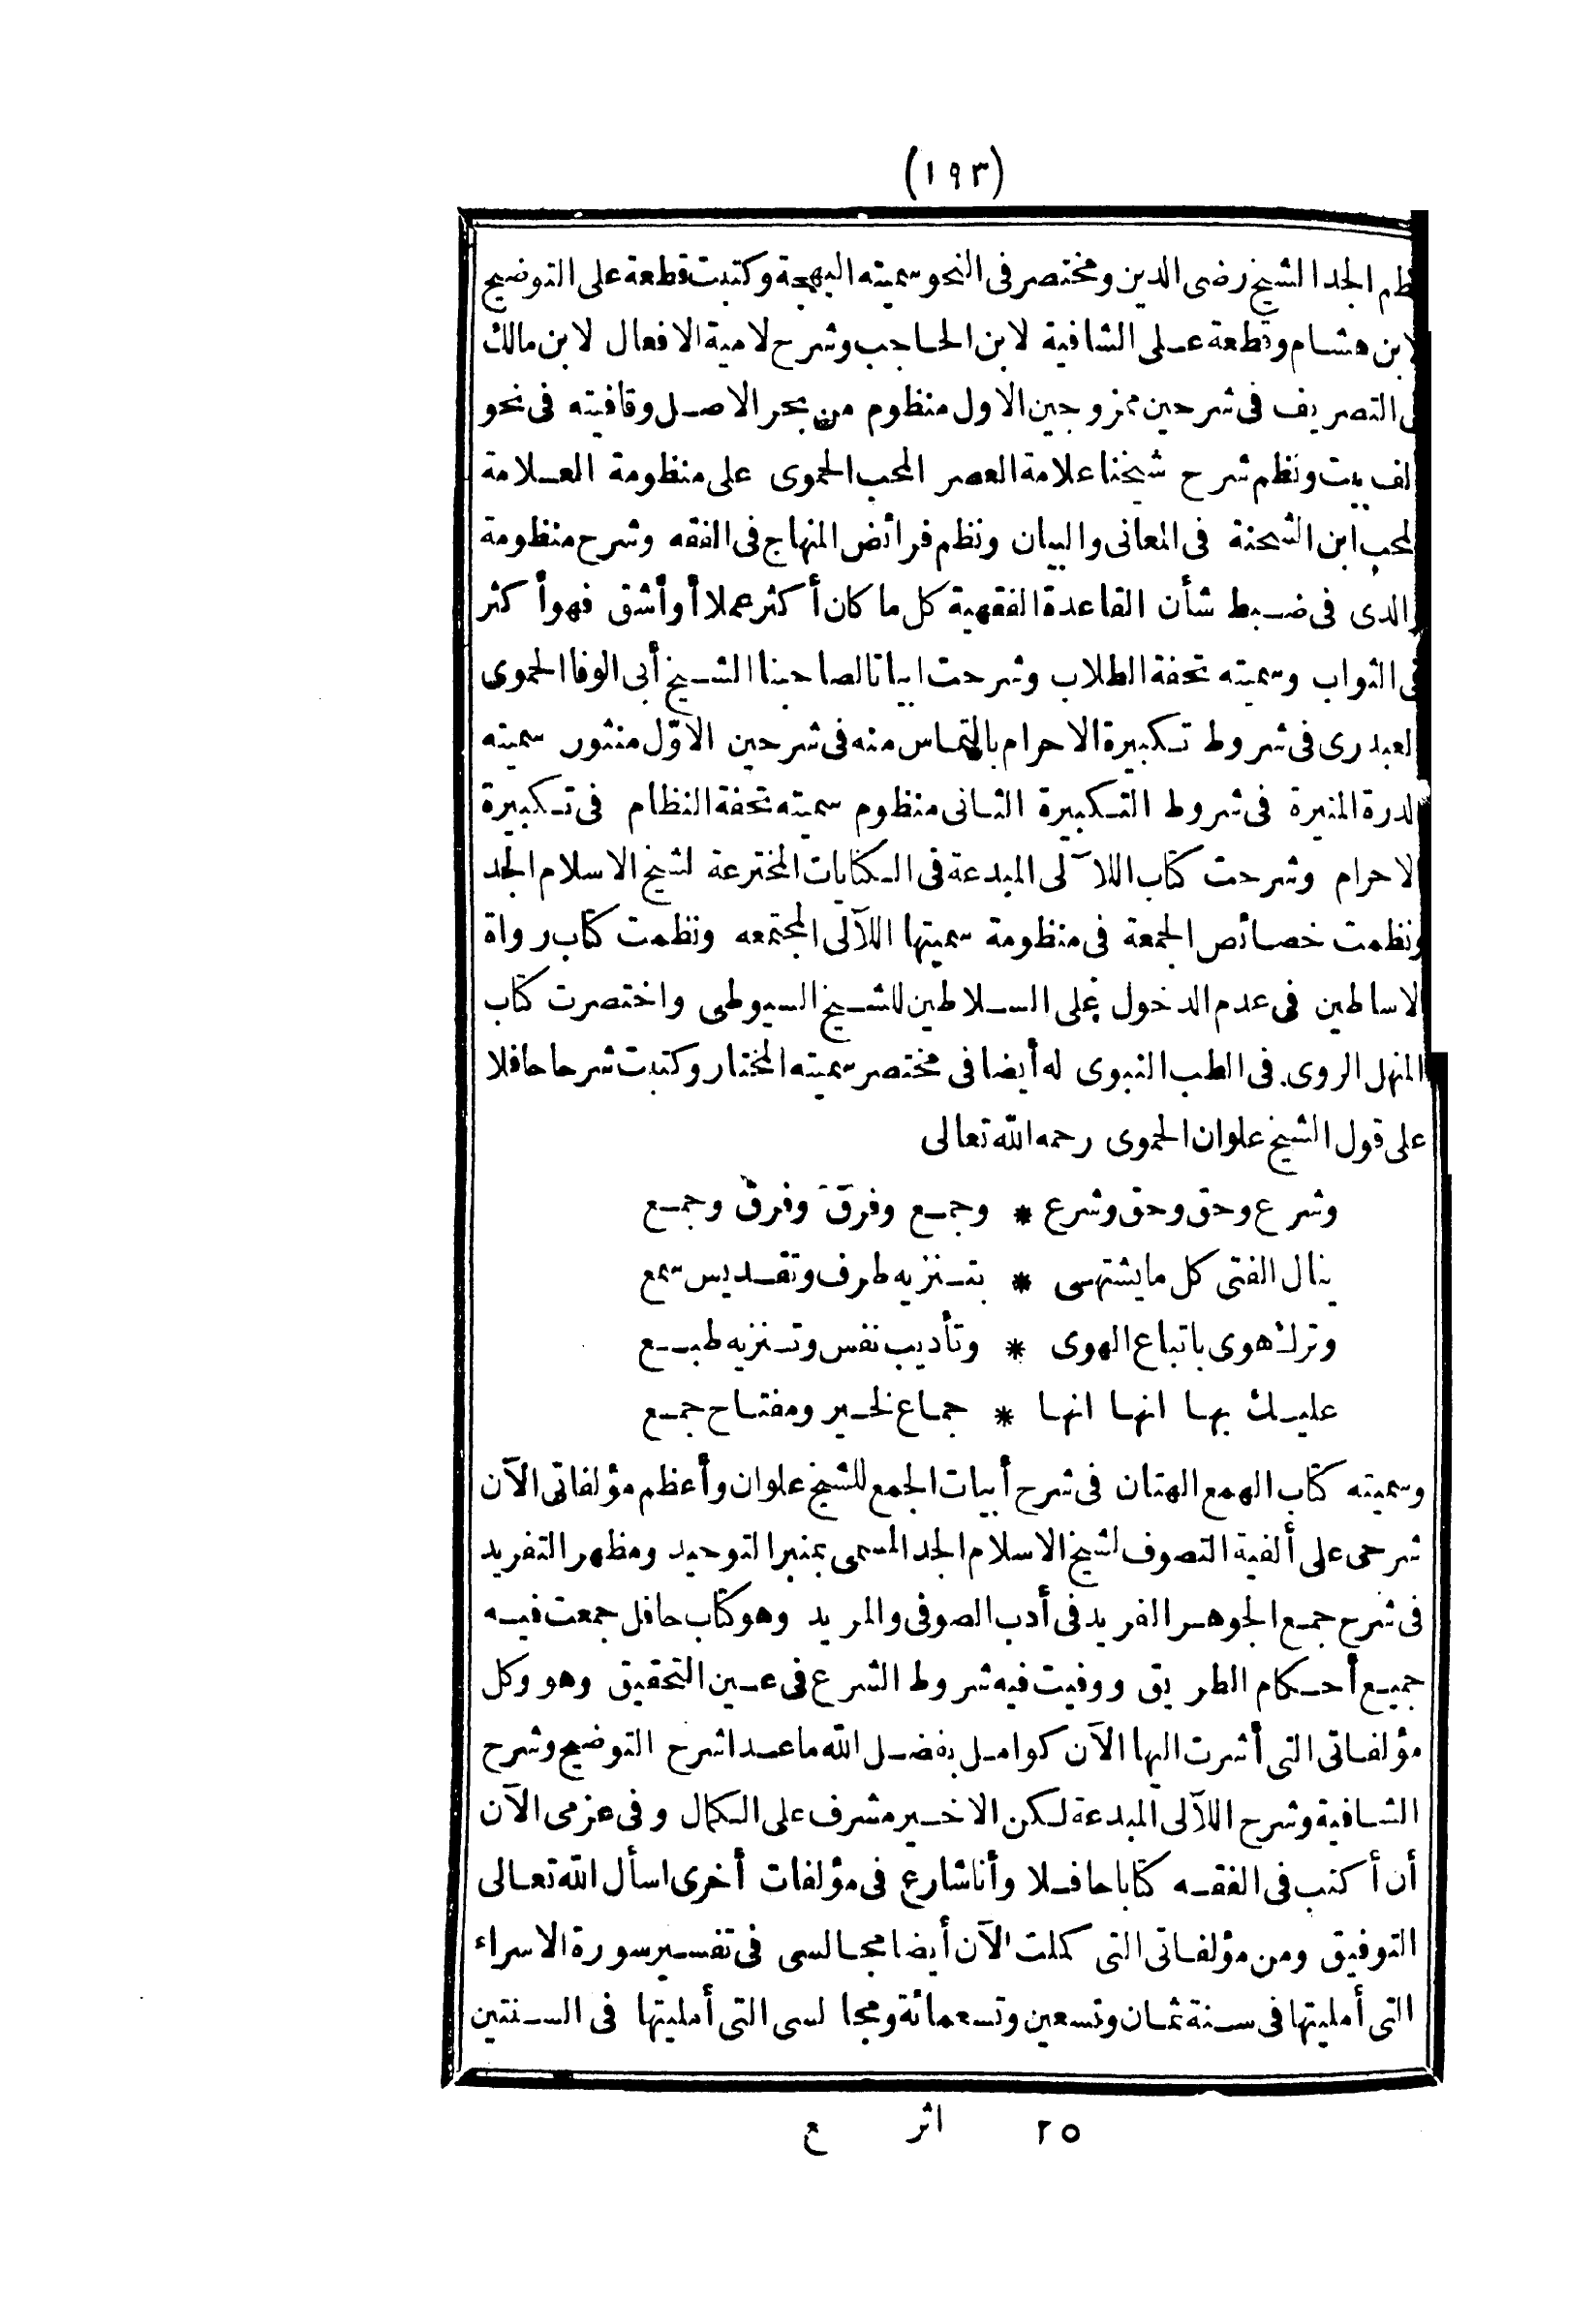 (١٩٣)
نظم الجد الشيخ رضى الدين ومختصر فى النحو سميته البهجة وكتبت قطعة على التوضيح
لابن هشام وقطعة على الشافية لابن الحاجب وشرح لامية الافعال لابن مالك
فى التصريف فى شرحين ممزوجين الاول منظوم من بحر الاصل وقافيته فى نحو
ألف بيت ونظم شرح شيخنا علامة العصر المحب الحموى على منظومة العلامة
المحب ابن الشحنة فى المعانى والبيان ونظم فرائض المنهاج فى الفقه وشرح منظومة
والدى فى ضبط شأن القاعدة الفقهية كل ما كان أكثر عملا أو أشق فهو أكثر
فى الثواب وسميته تحفة الطلاب وشرحت ابياتا لصاحبنا الشيخ أبى الوفا الحموى
العبدرى فى شروط تكبيرة الاحرام بالتماس منه فى شرحين الاوّل منثور سميته
الدرة المنيرة فى شروط التكبيرة الثانى منظوم سميته تحفة النظام فى تكبيرة
الاحرام وشرحت كتاب اللآلى المبدعة فى الكتابات المخترعة لشيخ الاسلام الجد
ونظمت خصائص الجمعة فى منظومة سميتها اللآلى المجتمعه ونظمت كتاب رواة
الاساطين فى عدم الدخول على السلاطين للشيخ السيوطى واختصرت كتاب
المنهل الروى فى الطب النبوى له أيضا فى مختصر سميته المختار وكتبت شرحا حافلا
على قول الشيخ علوان الحموى رحمه الله تعالى
وشرع وحق وحق وشرع * وجمع وفرق وفرق وجمع
ينال الفتى كل ما يشتهى * بتنزيه طرف وتقديس سمع
وترك هوى باتباع الهوى * وتأديب نفس وتنزيه طبع
عليك بها انها انها * جماع لخير ومفتاح جمع
وسميته كتاب الهمع الهتان فى شرح أبيات الجمع للشيخ علوان وأعظم مؤلفاتى الآن
شرحى على ألفية التصوف لشيخ الاسلام الجد المسمى بمنبر التوحيد ومظهر التفريد
فى شرح جمع الجوهر الفريد فى أدب الصوفى والمريد وهو كتاب حافل جمعت فيه
جميع أحكام الطريق ووفيت فيه شروط الشرع فى عين التحقيق وهو وكل
مؤلفاتى التى أشرت اليها الآن كوامل بفضل الله ماعدا شرح التوضيح وشرح
الشافية وشرح اللآلى المبدعة لكن الاخير مشرف على الكمال وفى عزمى الآن
أن أكتب فى الفقه كتابا حافلا وأنا شارع فى مؤلفات أخرى اسأل الله تعالى
التوفيق ومن مؤلفاتى التى كملت الآن أيضا مجالسى فى تفسير سورة الاسراء
التى أمليتها فى سنة ثمان وتسعين وتسعمائة ومجالسى التى أمليتها فى السنتين
٢٥ اثر ع